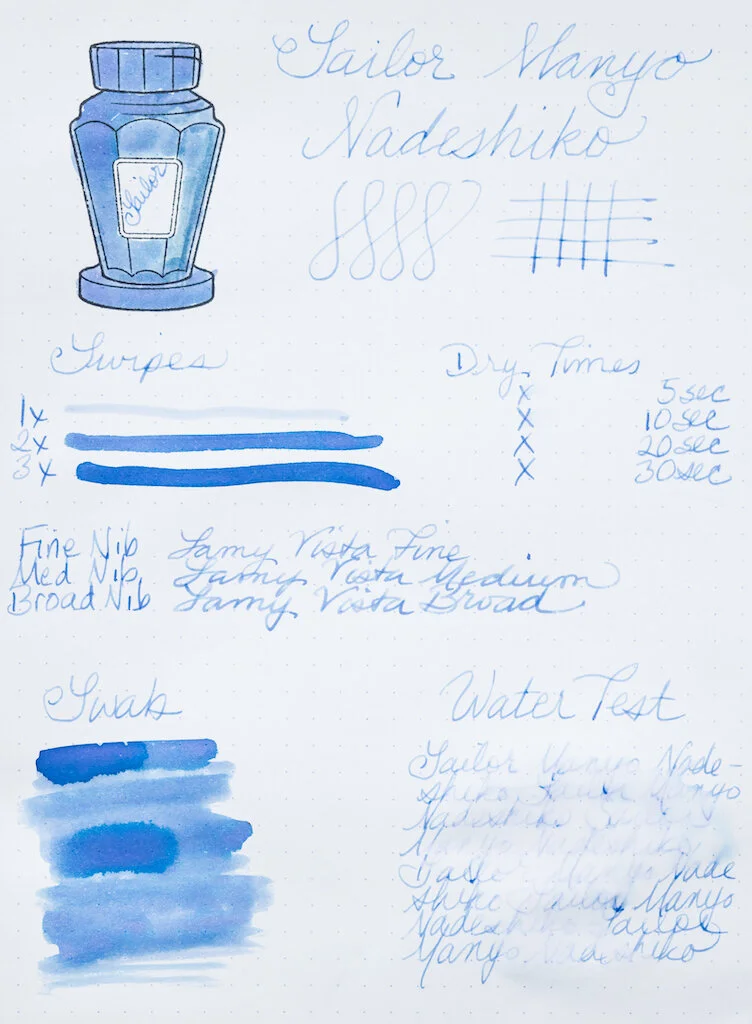 Sailor Manyo
Nadeshiko
Sailor
Swipes
1x
2x
3x
Dry Times
x 5sec
x 10sec
x 20sec
x 30sec
Fine Nib Lamy Vista Fine
Med Nib Lamy Vista Medium
Broad Nib Lamy Vista Broad
Swab
Water Test
Sailor Manyo Nade-
shiko Sailor Manyo
Nadeshiko Sailor
Manyo Nadeshiko
Sailor Manyo Nade
shiko Sailor Manyo
Nadeshiko Sailor
Manyo Nadeshiko